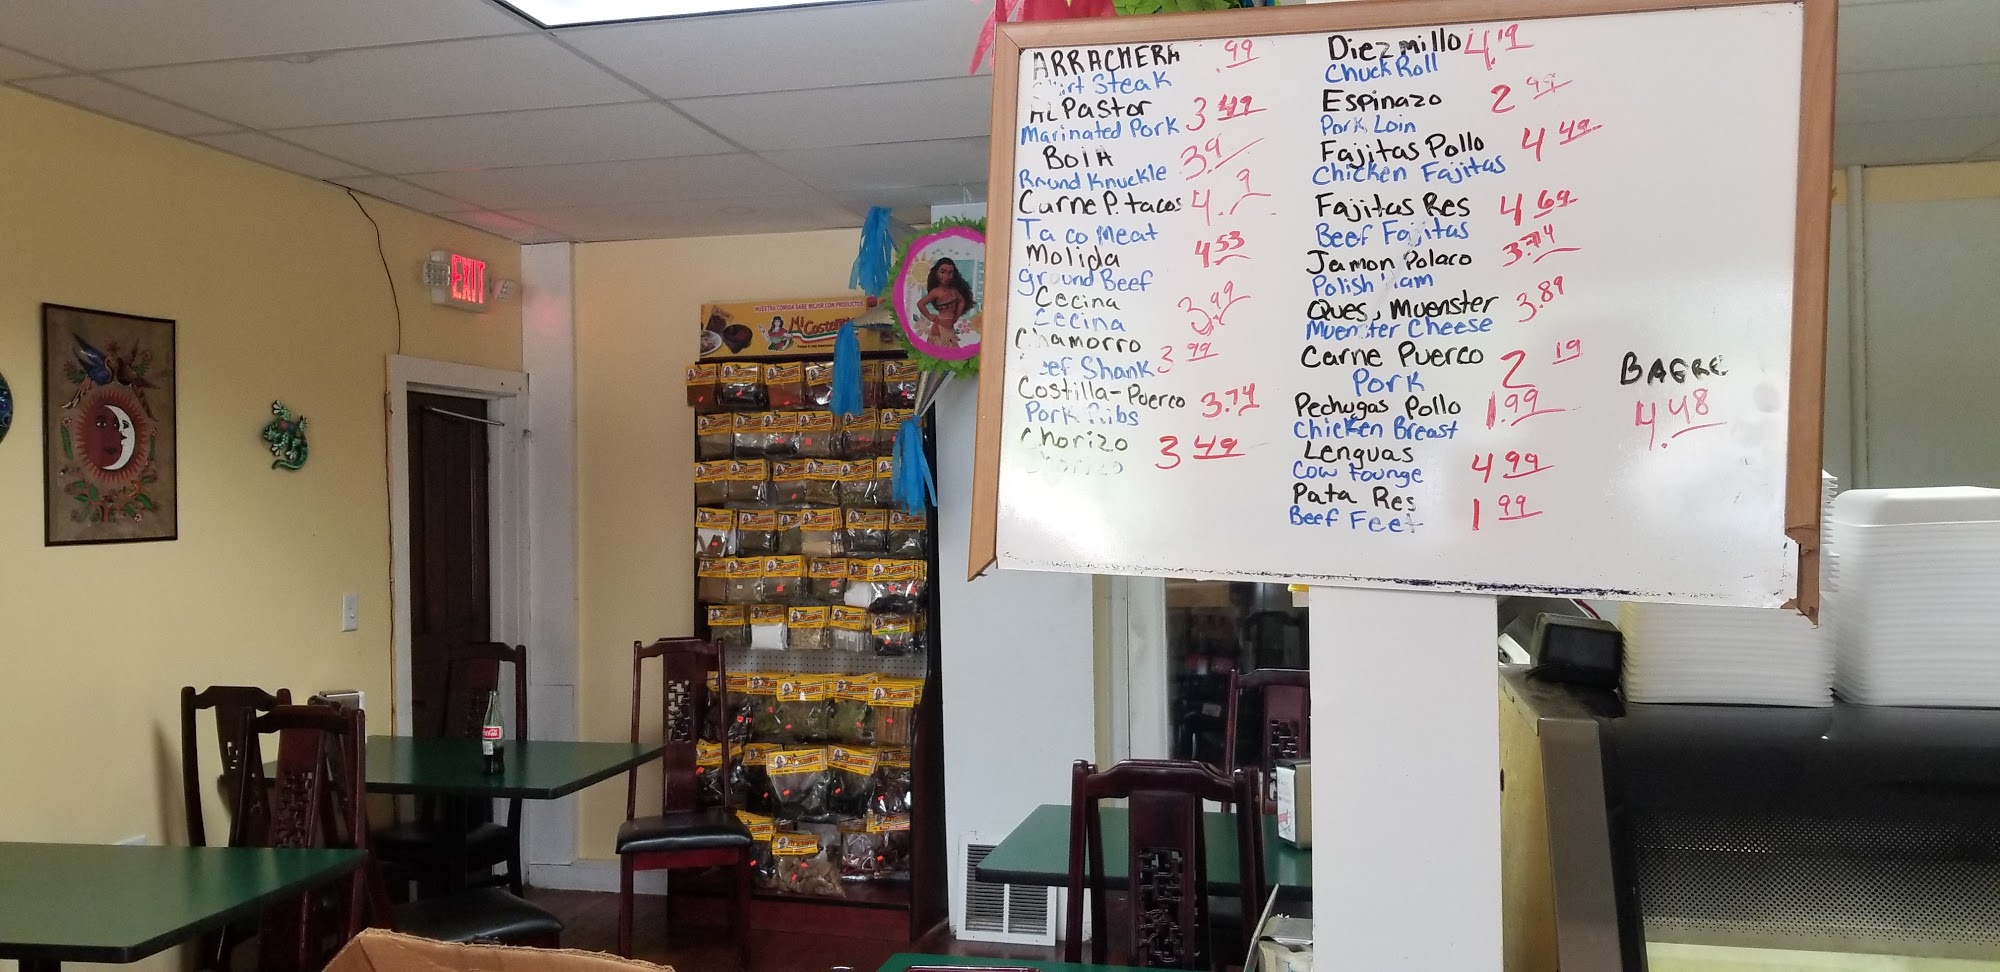 EXIT
NUESTRA COMIDA SABE MEJOR CON PRODUCTOS
Mi Costeñita
ARRACHERA .99
Steak
AL Pastor 3 49
Marinated Pork
Bola
Round Knuckle
Carne P. tacos
Taco Meat
Molida 4 53
Ground Beef
Cecina 3.99
Cecina
Chamorro 3 99
Beef Shank
Costilla-Puerco 3.74
Pork Ribs
Chorizo 3 49
Chorizo
Diezmillo 4.19
Chuck Roll
Espinazo 2 99
Pork Loin
Fajitas Pollo 4 49
Chicken Fajitas
Fajitas Res 4 69
Beef Fajitas
Jamon Polaco 3.74
Polish Ham
Ques, Muenster 3.89
Muenster Cheese
Carne Puerco 2 19
Pork
Pechugas Pollo 1.99
Chicken Breast
Lenguas 4 99
Cow Tounge
Pata Res 1 99
Beef Feet
BAGRE
4.48